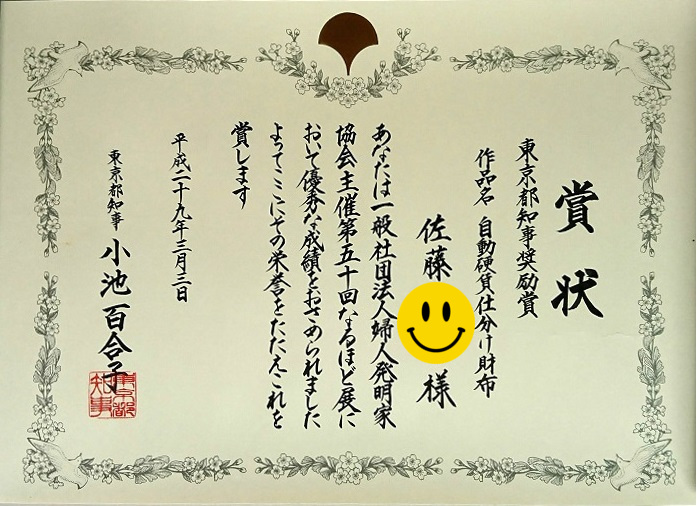 賞状
東京都知事奨励賞
作品名 自動硬貨仕分け財布
佐藤 様
あなたは一般社団法人婦人発明家
協会主催第五十回なるほど展に
おいて優秀な成績をおさめられました
よってここにその栄誉をたたえこれを
賞します
平成二十九年三月三日
東京都知事 小池百合子
東京都
知事